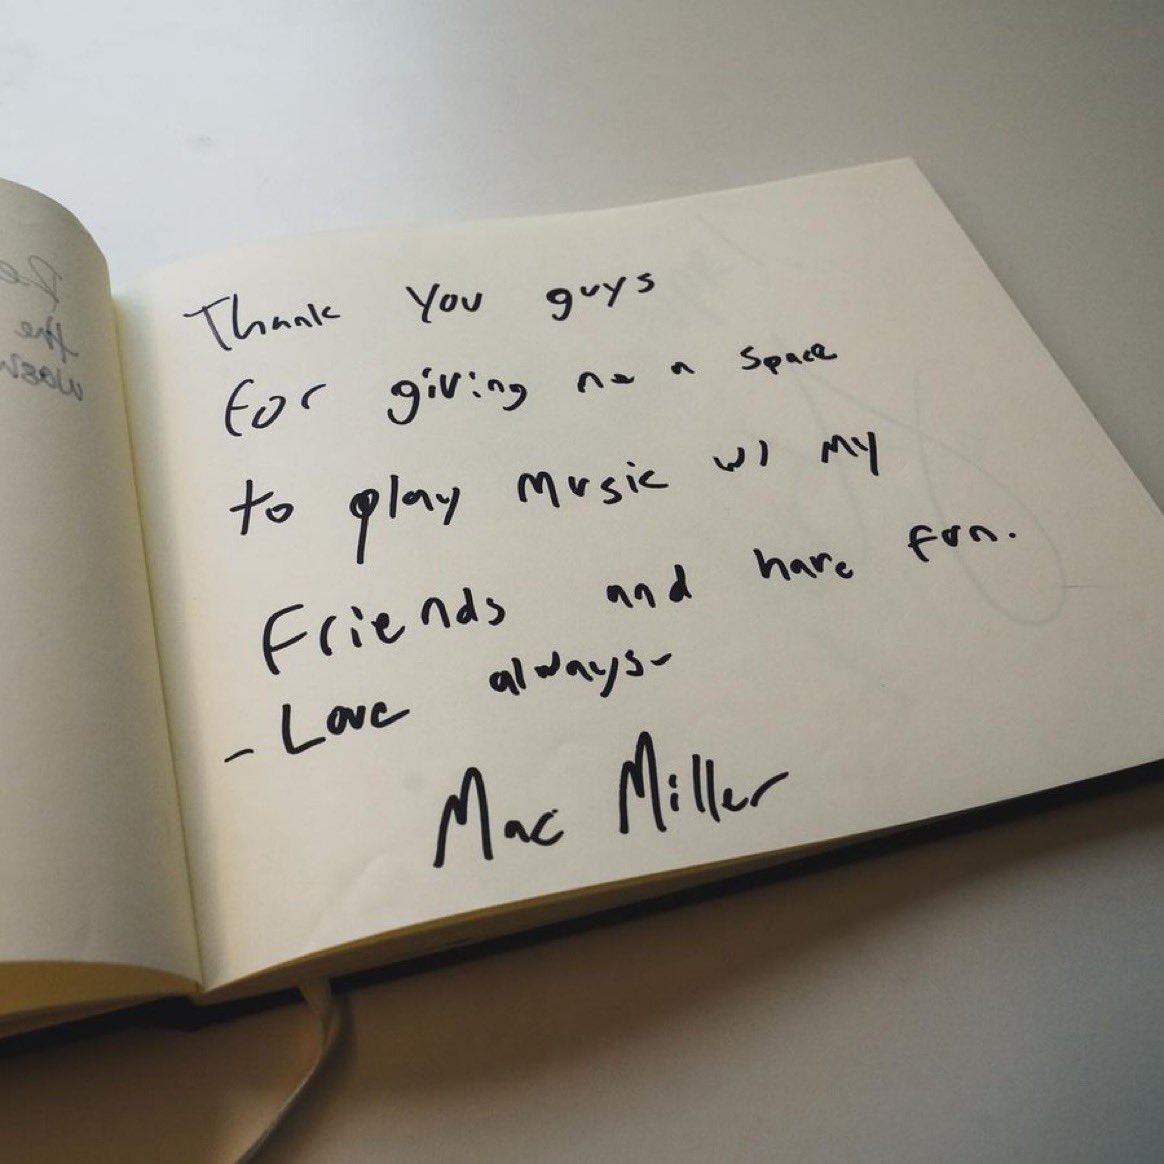 Thank You guys
for giving me a space
to play music w/ my
Friends and have fun.
- Love always-
Mac Miller
the